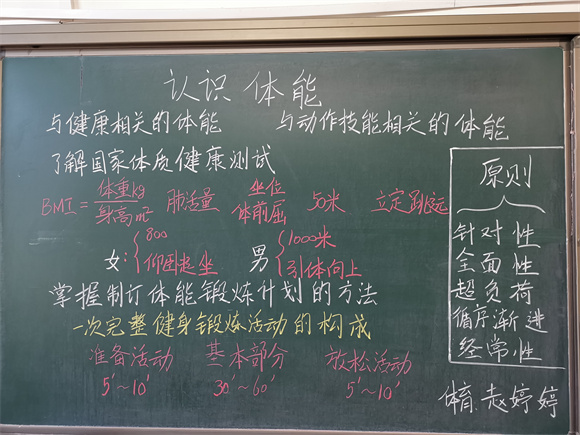 认识体能
与健康相关的体能 与动作技能相关的体能
了解国家体质健康测试
BMI = 体重kg / 身高m² 肺活量 坐位体前屈 50米 立定跳远
女: 800 仰卧起坐 男 1000米 引体向上
掌握制订体能锻炼计划的方法
一次完整健身锻炼活动的构成
准备活动 基本部分 放松活动
5'~10' 30'~60' 5'~10'
原则
针对性
全面性
超负荷
循序渐进
经常性
体育 赵婷婷